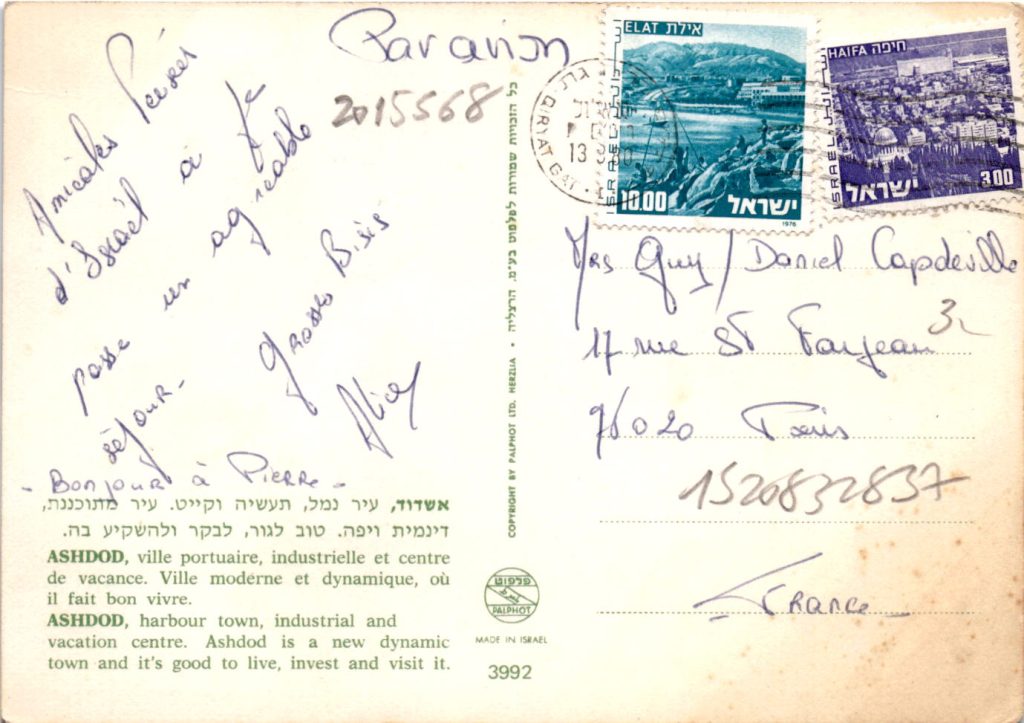 Par avion
2015568
Amicales Pensées
d'Israël où je
passe un agréable
séjour-
Grosses Bises
- Bonjour à Pierre -
אשדוד, עיר נמל, תעשיה וקייט. עיר מתוכננת,
דינמית ויפה. טוב לגור, לבקר ולהשקיע בה.
ASHDOD, ville portuaire, industrielle et centre
de vacance. Ville moderne et dynamique, où
il fait bon vivre.
ASHDOD, harbour town, industrial and
vacation centre. Ashdod is a new dynamic
town and it's good to live, invest and visit it.
כל הזכויות שמורות לפלפוט בע"מ. הרצליה • COPYRIGHT BY PALPHOT LTD. HERZLIA
פלפוט
PALPHOT
MADE IN ISRAEL
3992
ELAT אילת
ISRAEL
10.00 ישראל
1976
HAIFA חיפה
ISRAEL
ישראל 3.00
QIRYAT GAT
13
Mrs Guy/Daniel Capdeville
17 rue St Fargeau
75020 Paris
1520832837
France